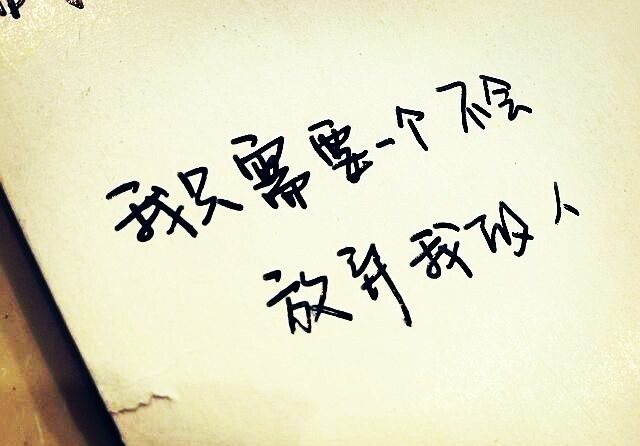 我只需要一个不会
放弃我的人